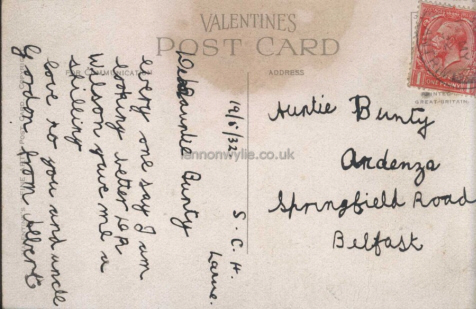 VALENTINES
POST CARD
FOR COMMUNICATION
ADDRESS
19/8/32.
S. C. H.
Larne.
Dear auntie Bunty
every one say I am
looking better
Wilson gave me a
shilling
love to you and uncle
Gordon from
Auntie Bunty
Ardenza
Springfield Road
Belfast
GREAT BRITAIN.
lennonwylie.co.uk